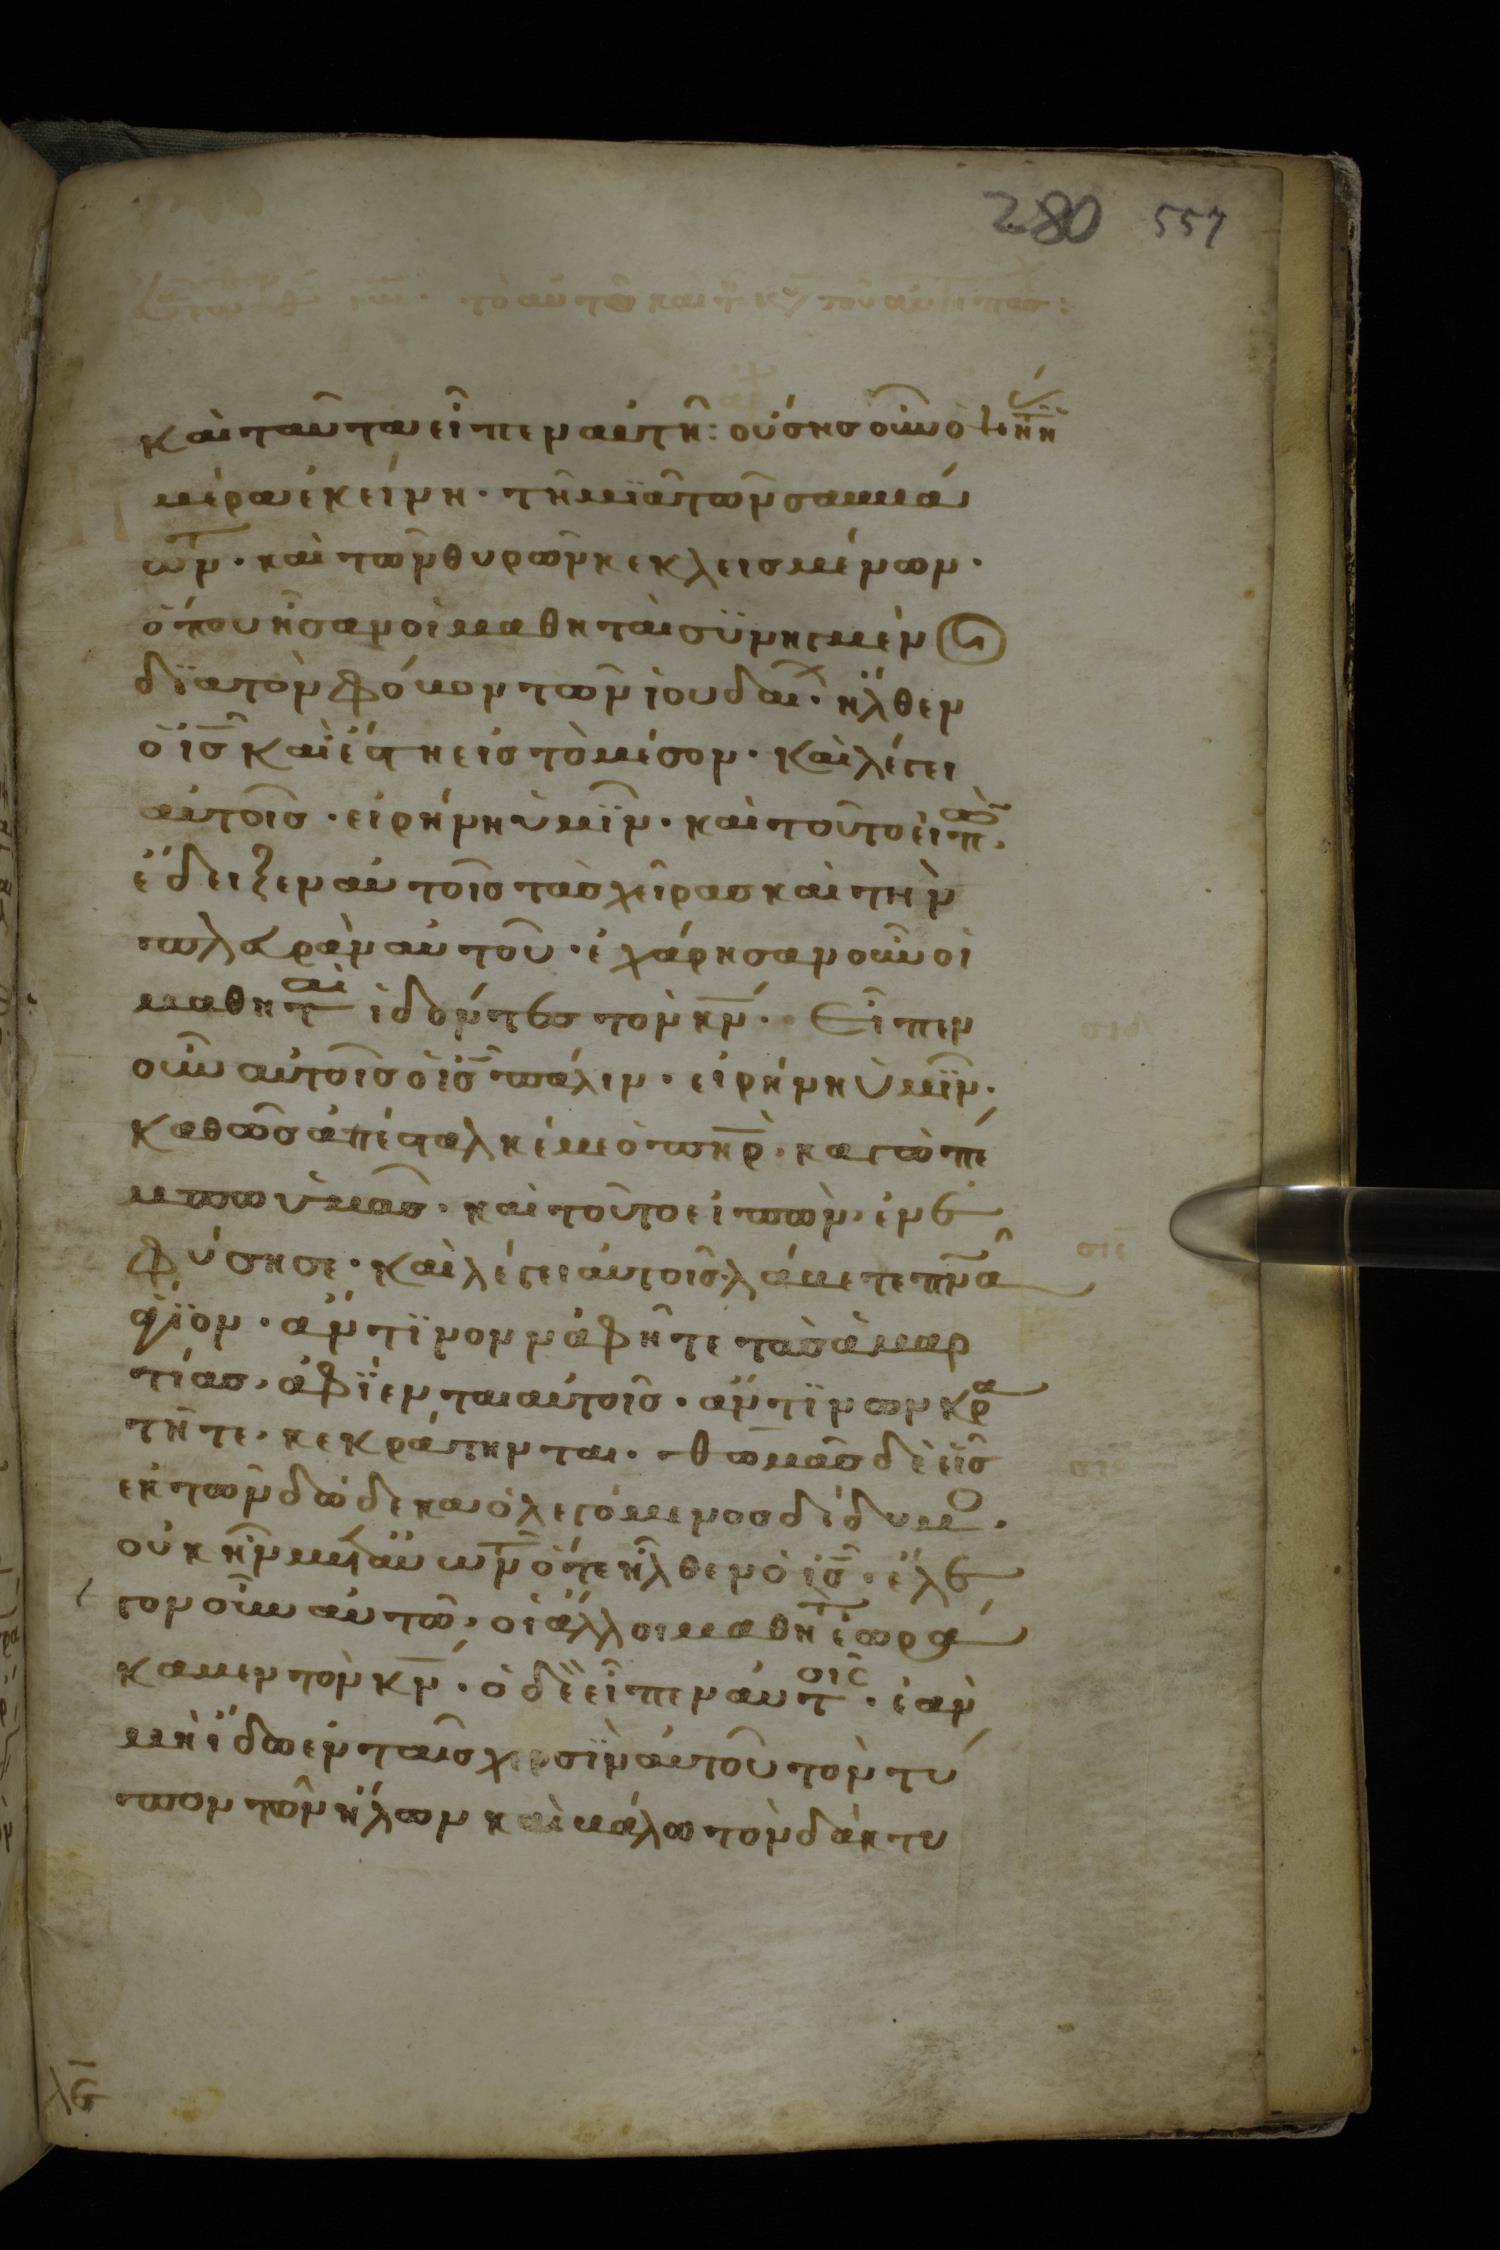 280 557
και ταῦτα εἶπεν αὐτῆ: οὔσης οὖν ὀψί τῆ ἡ
μέρα ἐκείνη · τῆ μϊᾶ τῶν σαββά
των · καὶ τῶν θυρῶν κεκλεισμένων ·
ὅπου ἦσαν οἱ μαθηταὶ συνηγμέν οι
δϊὰ τὸν φόβον τῶν ἰουδαι · ἦλθεν
ὁ ἰς καὶ ἔστη εἰς τὸ μέσον · καὶ λέγει
αὐτοῖς · εἰρήνη ὑμῖν · καὶ τοῦτο εἰπὼν
ἔδειξεν αὐτοῖς τὰς χεῖρας καὶ τὴν
πλευρὰν αὐτοῦ · ἐχάρησαν οὖν οἱ
μαθηταὶ ἰδόντες τὸν κν · Εἶπεν
οὖν αὐτοῖς ὁ ἰς πάλιν · εἰρήνη ὑμῖν ·
καθὼς ἀπέσταλκέ με ὁ πηρ · καγὼ πέ
μπω ὑμᾶς · καὶ τοῦτο εἰπὼν, ἐνε
φύσησε · καὶ λέγει αὐτοῖς · λάβετε πνα
ἅγϊον · ἄν τϊνον νἀφῆτε τὰς ἁμαρ
τίας, ἀφϊενται αὐτοῖς · ἄν τϊνων κρα
τῆτε, κεκράτηνται · θωμᾶς δὲ εἷς
ἐκ τῶν δώδεκα ὁ λεγόμενος δίδυμο ·
οὐκ ἦν μετ αὐτῶν ὅτε ἦλθεν ὁ ἰς · ἔλε
γον οὖν αὐτῶ, οἱ ἄλλοι μαθητ ἑωρά
καμεν τὸν κν · ὁ δὲ εἶπεν αὐτοῖς · ἐὰν
μὴ ἴδω ἐν ταῖς χερσϊν αὐτοῦ τὸν τύ
πον τῶν ἥλων καὶ βάλω τὸν δάκτυ
λε